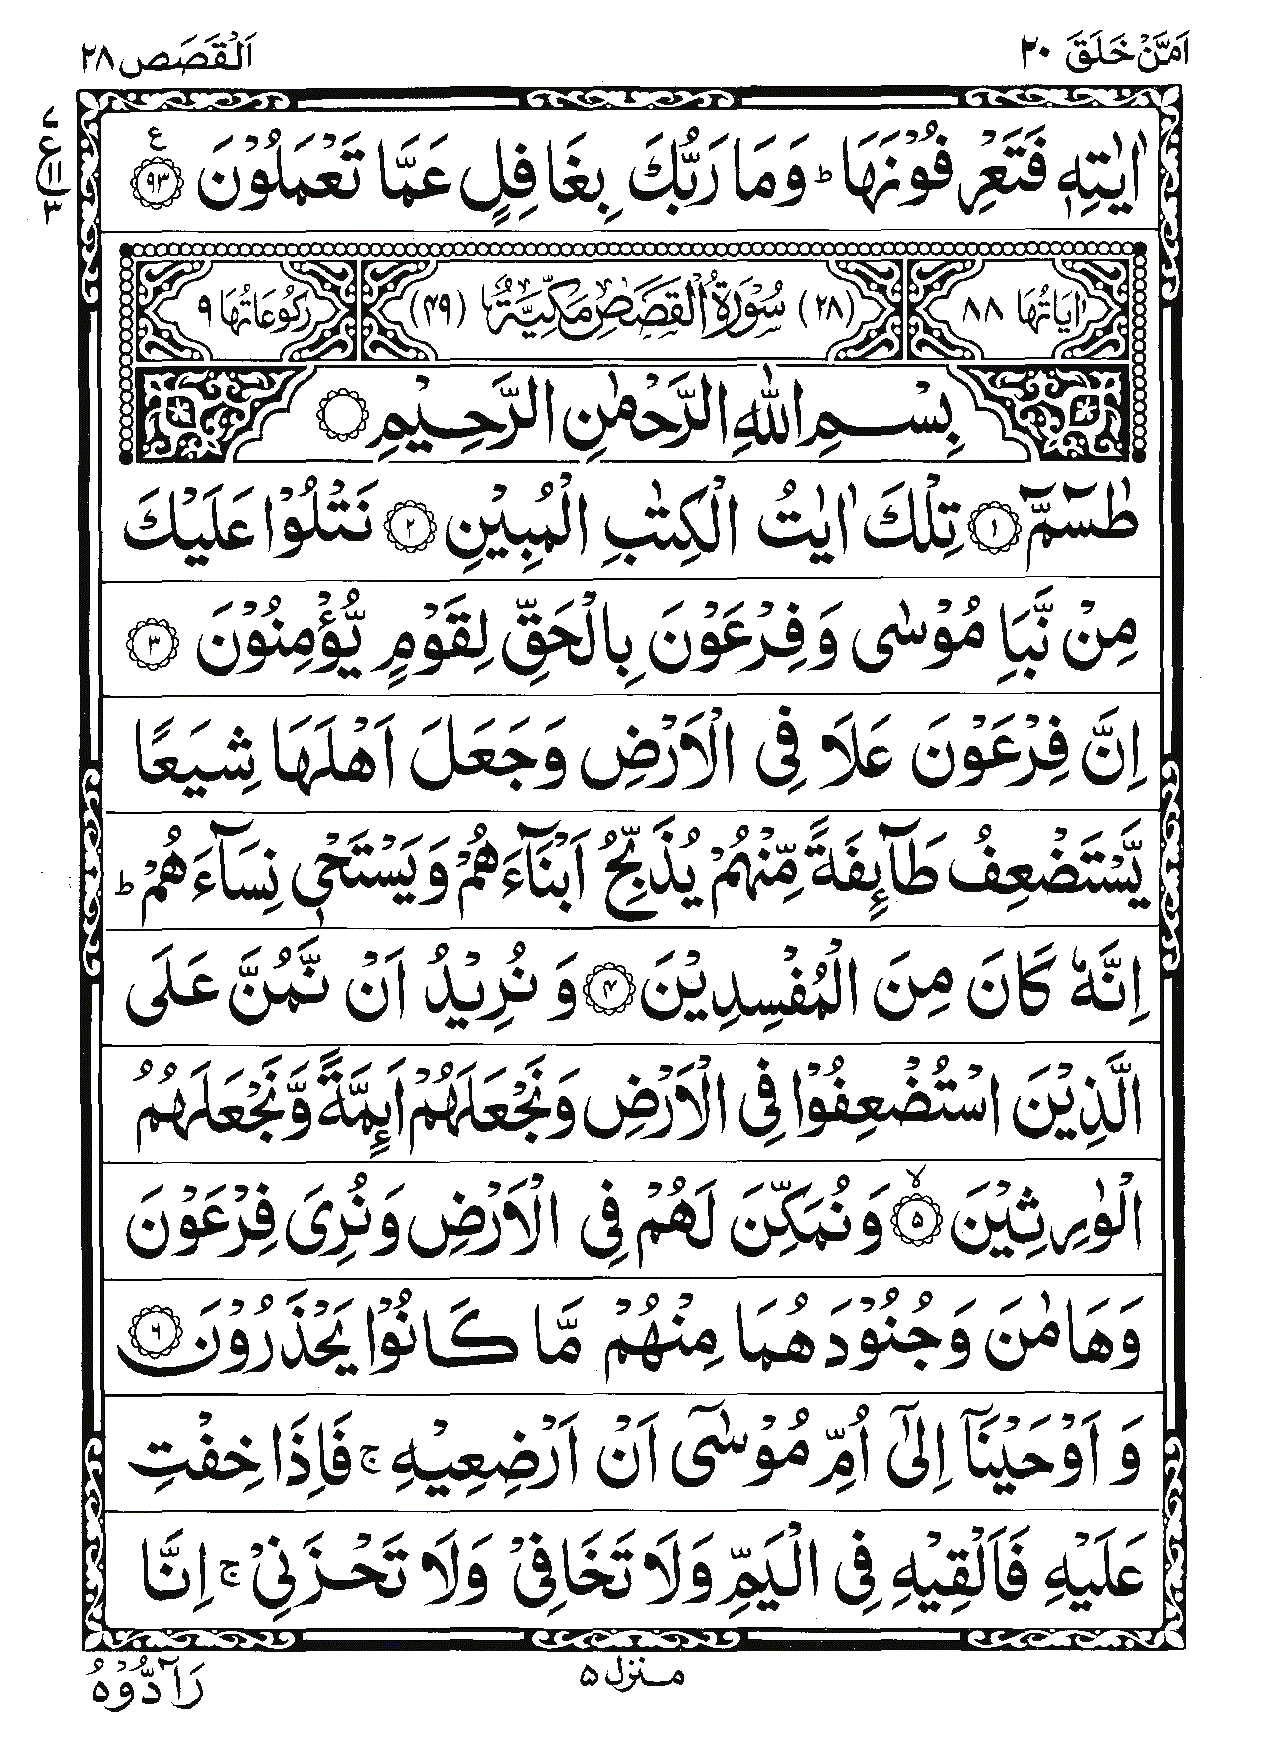 اَمَّنْ خَلَقَ ۲۰
اَلْقَصَص ۲۸
اٰيٰتِهٖ فَتَعْرِفُوْنَهَا ؕ وَمَا رَبُّكَ بِغَافِلٍ عَمَّا تَعْمَلُوْنَ ﴿۹۳﴾ ع
۷
ع
۱۱
۳
اٰيَاتُهَا ۸۸
(۲۸) سُوْرَةُ الْقَصَصِ مَكِّيَّةٌ (۴۹)
رُكُوْعَاتُهَا ۹
بِسْمِ اللّٰهِ الرَّحْمٰنِ الرَّحِيْمِ ۝
طٰسٓمّٓ ﴿۱﴾ تِلْكَ اٰيٰتُ الْكِتٰبِ الْمُبِيْنِ ﴿۲﴾ نَتْلُوْا عَلَيْكَ
مِنْ نَّبَاِ مُوْسٰى وَفِرْعَوْنَ بِالْحَقِّ لِقَوْمٍ يُّؤْمِنُوْنَ ﴿۳﴾
اِنَّ فِرْعَوْنَ عَلَا فِى الْاَرْضِ وَجَعَلَ اَهْلَهَا شِيَعًا
يَّسْتَضْعِفُ طَآئِفَةً مِّنْهُمْ يُذَبِّحُ اَبْنَآءَهُمْ وَيَسْتَحْىٖ نِسَآءَهُمْ ؕ
اِنَّهٗ كَانَ مِنَ الْمُفْسِدِيْنَ ﴿۴﴾ وَ نُرِيْدُ اَنْ نَّمُنَّ عَلَى
الَّذِيْنَ اسْتُضْعِفُوْا فِى الْاَرْضِ وَنَجْعَلَهُمْ اَئِمَّةً وَّنَجْعَلَهُمُ
الْوٰرِثِيْنَ ﴿۵﴾ۙ وَنُمَكِّنَ لَهُمْ فِى الْاَرْضِ وَنُرِىَ فِرْعَوْنَ
وَهَامٰنَ وَجُنُوْدَهُمَا مِنْهُمْ مَّا كَانُوْا يَحْذَرُوْنَ ﴿۶﴾
وَ اَوْحَيْنَاۤ اِلٰٓى اُمِّ مُوْسٰٓى اَنْ اَرْضِعِيْهِ ۚ فَاِذَا خِفْتِ
عَلَيْهِ فَاَلْقِيْهِ فِى الْيَمِّ وَلَا تَخَافِىْ وَلَا تَحْزَنِىْ ۚ اِنَّا
منزل ۵
رَآدُّوْهُ